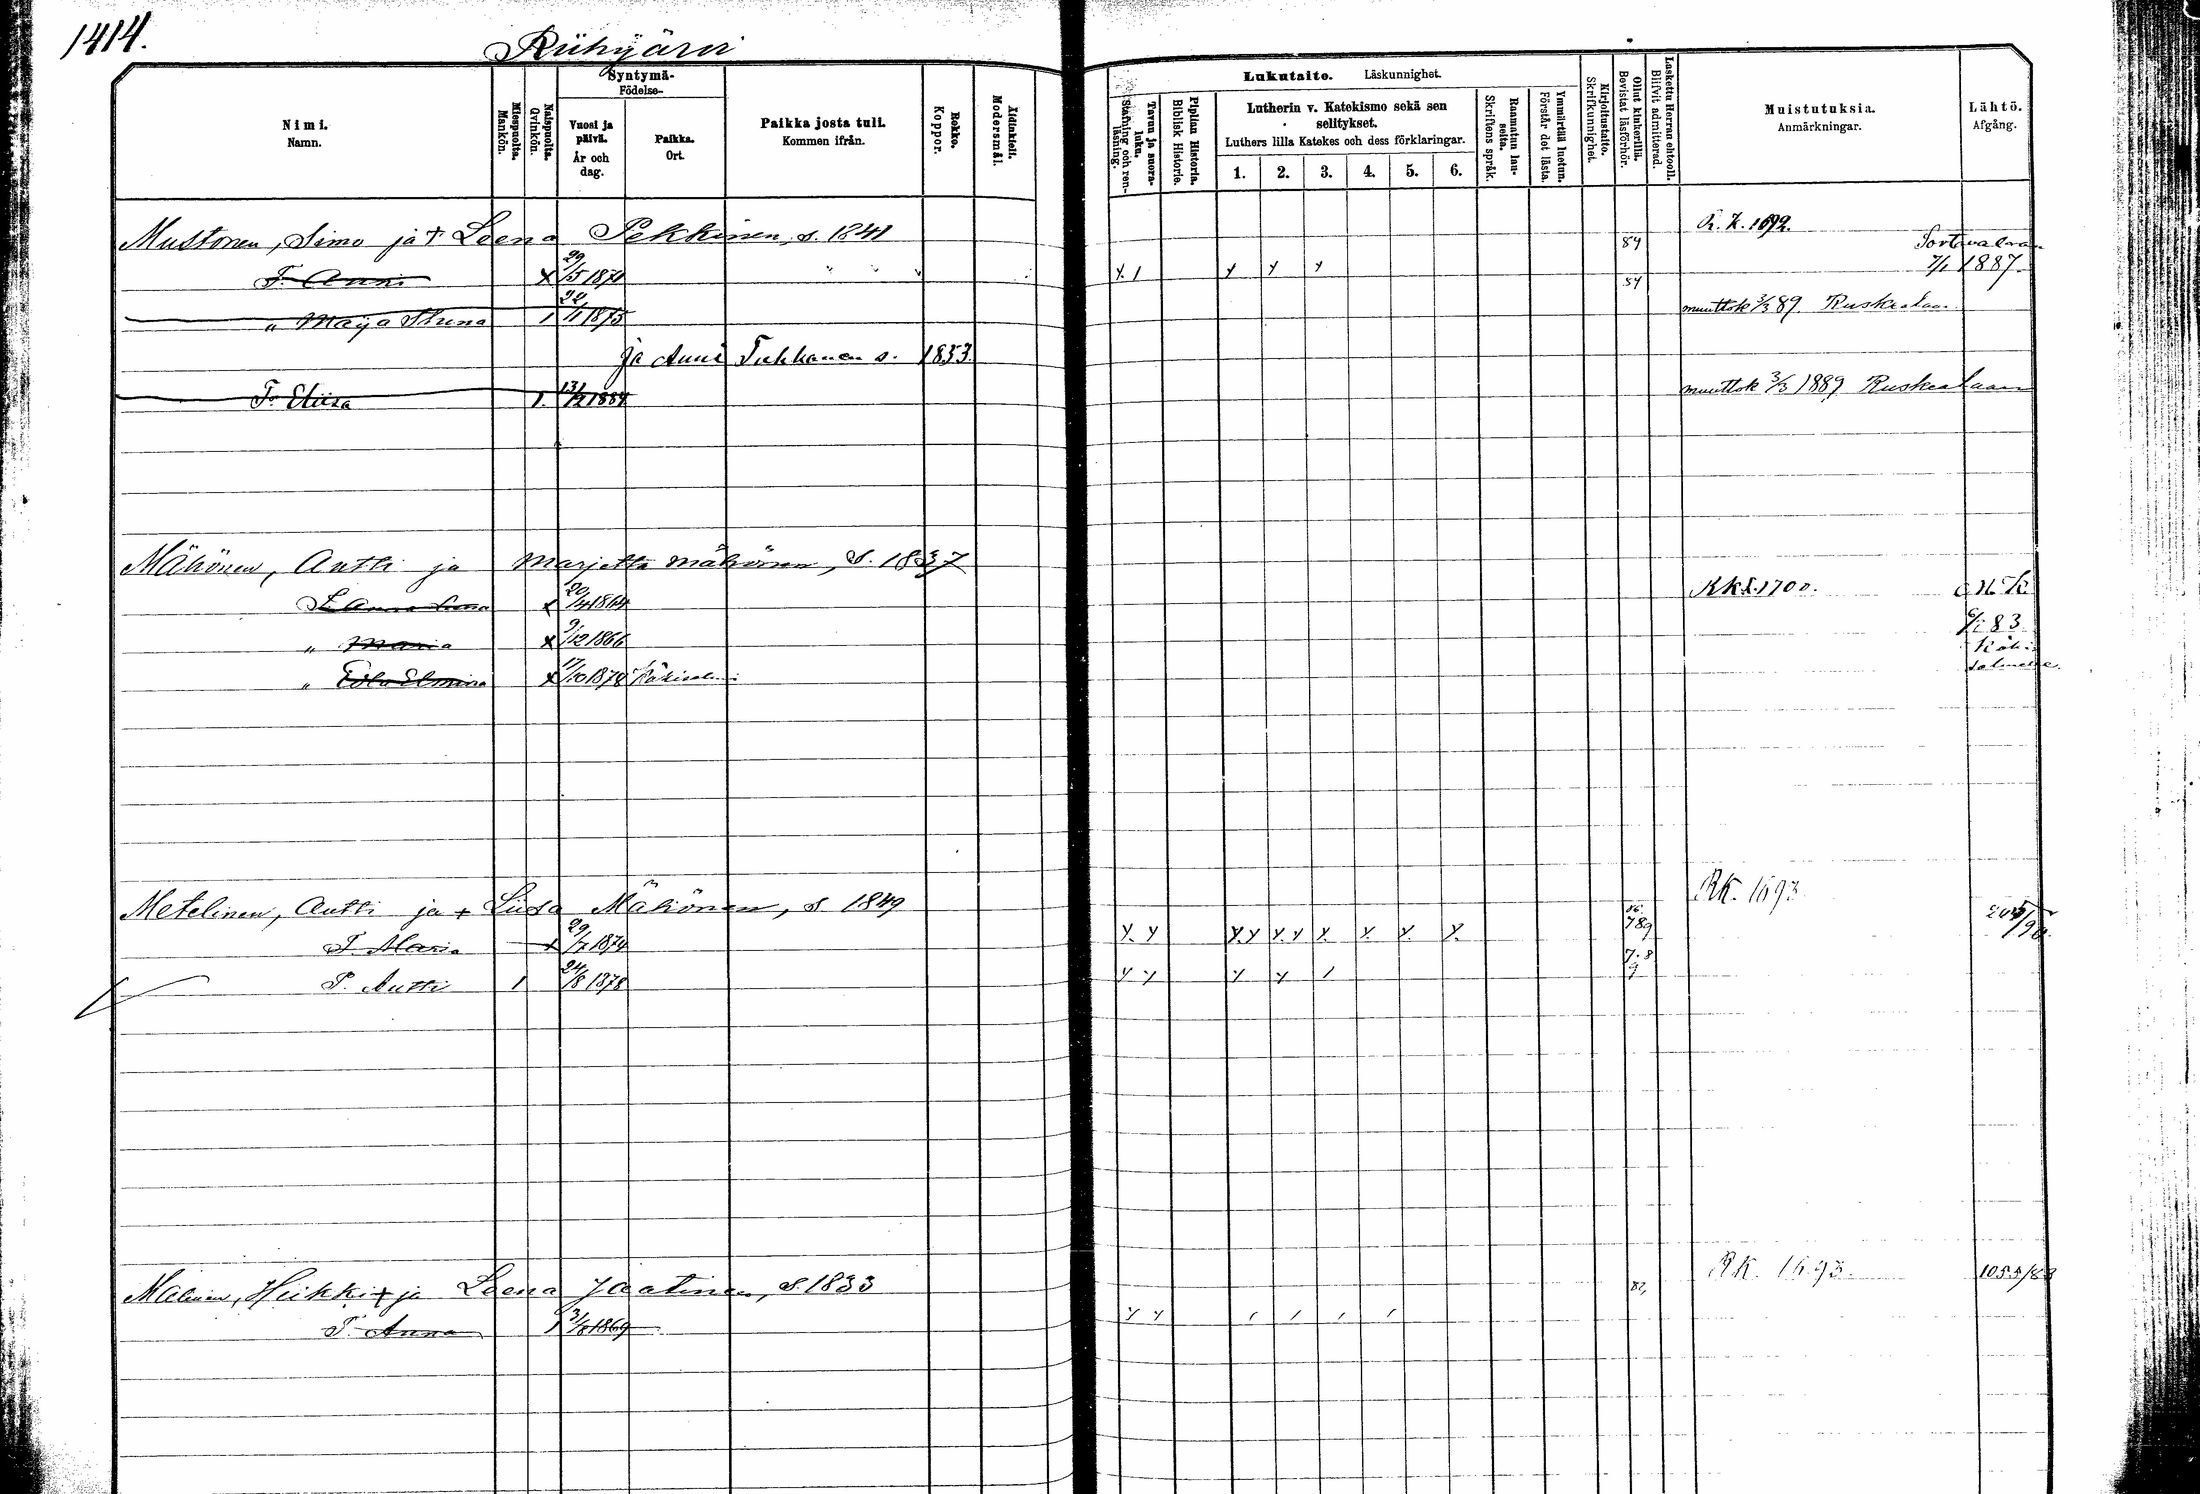 1414.
Riihijärvi
Nimi.
Namn.
Miespuolta.
Mankön.
Naispuolta.
Qvinkön.
Syntymä-
Födelse-
Vuosi ja päivä.
År och dag.
Paikka.
Ort.
Paikka josta tuli.
Kommen ifrån.
Rokko.
Koppor.
Äidinkieli.
Modersmål.
Lukutaito. Läskunnighet.
Tavuu ja suora-luku.
Stafning och ren-läsning.
Piplian Historia.
Biblisk Historie.
Lutherin v. Katekismo sekä sen selitykset.
Luthers lilla Katekes och dess förklaringar.
1. 2. 3. 4. 5. 6.
Raamatun lau-seita.
Skriftens språk.
Ymmärtää luetun.
Förstår det lästa.
Kirjoitustaito.
Skrifkunnighet.
Ollut kinkerillä.
Bevistat läsförhör.
Laskettu Herran ehtooll.
Blifvit admitterad.
Muistutuksia.
Anmärkningar.
Lähtö.
Afgång.
Mustonen, Simo ja + Leena Pekkinen, s. 1841 84 R. K. 1692. Sortavalaan
T. Anni x 29/5 1871 " " " y. 1 y y y 84 7/1 1887
" Maija Stiina 1 22/11 1875 muuttok 3/3 89. Ruskealaan
ja Anni Tukkanen s. 1853.
T. Eliisa 1. 13/12 1884 muuttok 3/3 1889 Ruskealaan
Mähönen, Antti ja Marjetta Mähönen, s. 1837
T. Anna Leena x 20/4 1864 RK s. 1700.
" Maria x 9/12 1866 83
" x 17/10 1878 Käkisalmi
Metelinen, Antti ja + Liisa Mähönen, s 1849 RK. 1693
T. Maria x 29/7 1874 y. y y.y y.y y. y. y. y. 789
P. Antti 1 24/8 1878 y y y y 1 7.8 9
Malinen, Heikki + ja Leena Jaatinen, s. 1833 82, RK. 1693. 1055/88
T. Anna 1 3/8 1869 y y 1 1 1 1